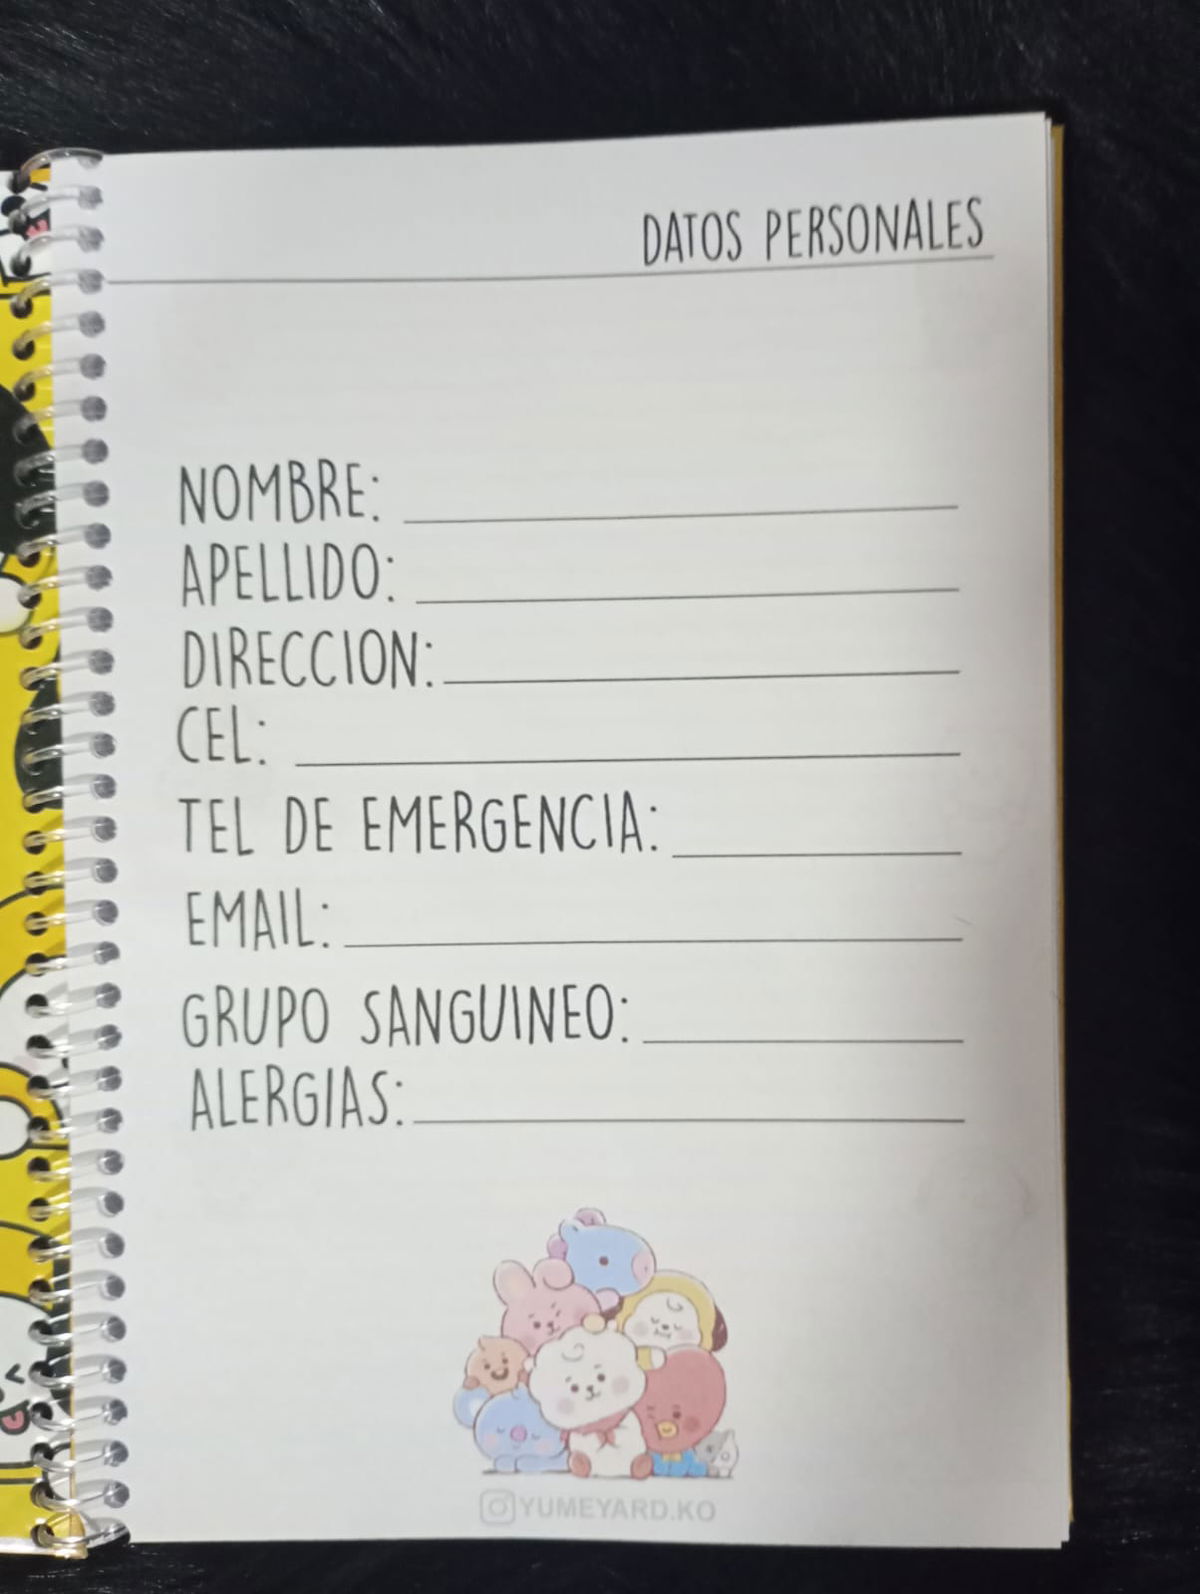 DATOS PERSONALES
NOMBRE:
APELLIDO:
DIRECCION:
CEL:
TEL DE EMERGENCIA:
EMAIL:
GRUPO SANGUINEO:
ALERGIAS:
YUMEYARD.KO